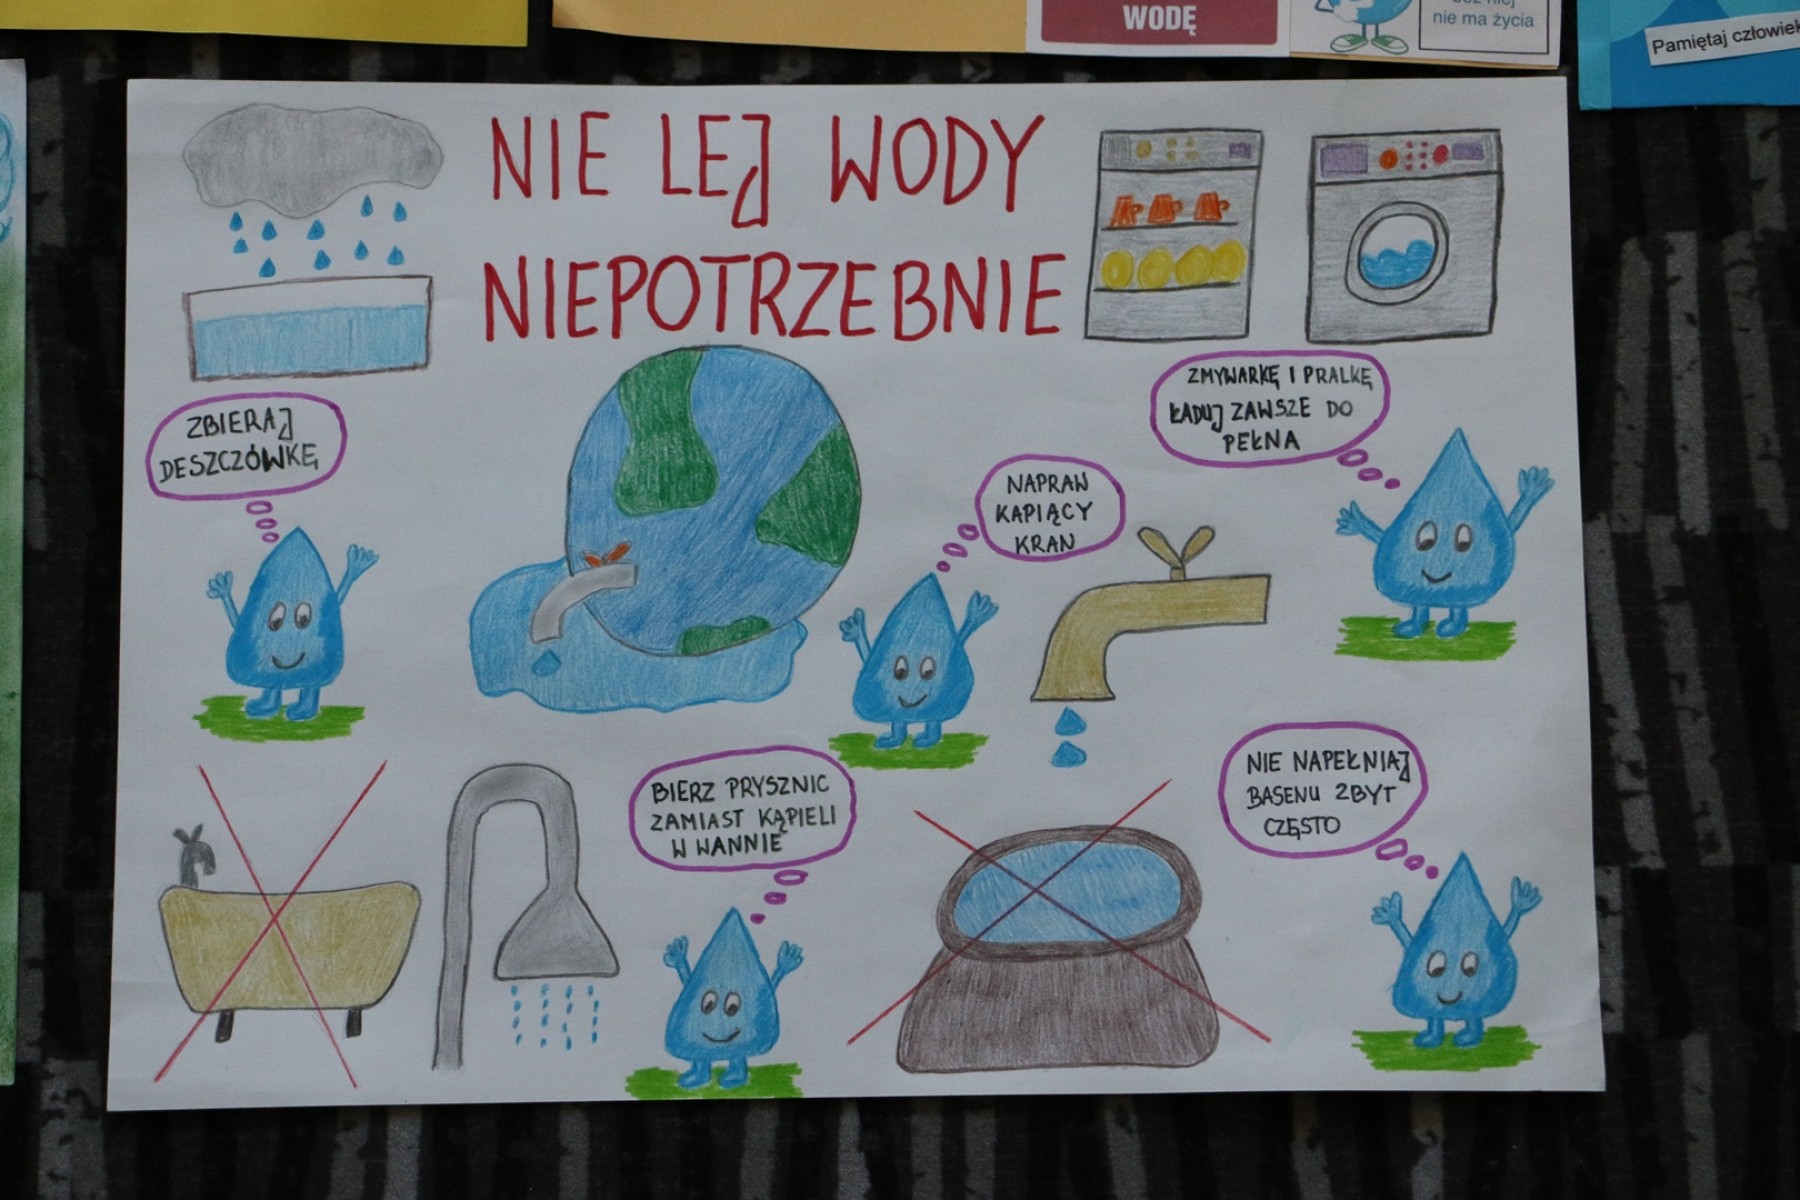 WODĘ
nie ma życia
Pamiętaj człowiek
NIE LEJ WODY
NIEPOTRZEBNIE
ZBIERAJ
DESZCZÓWKĘ
ZMYWARKĘ I PRALKĘ
ŁADUJ ZAWSZE DO
PEŁNA
NAPRAW
KAPIĄCY
KRAN
BIERZ PRYSZNIC
ZAMIAST KĄPIELI
W WANNIE
NIE NAPEŁNIAJ
BASENU ZBYT
CZĘSTO